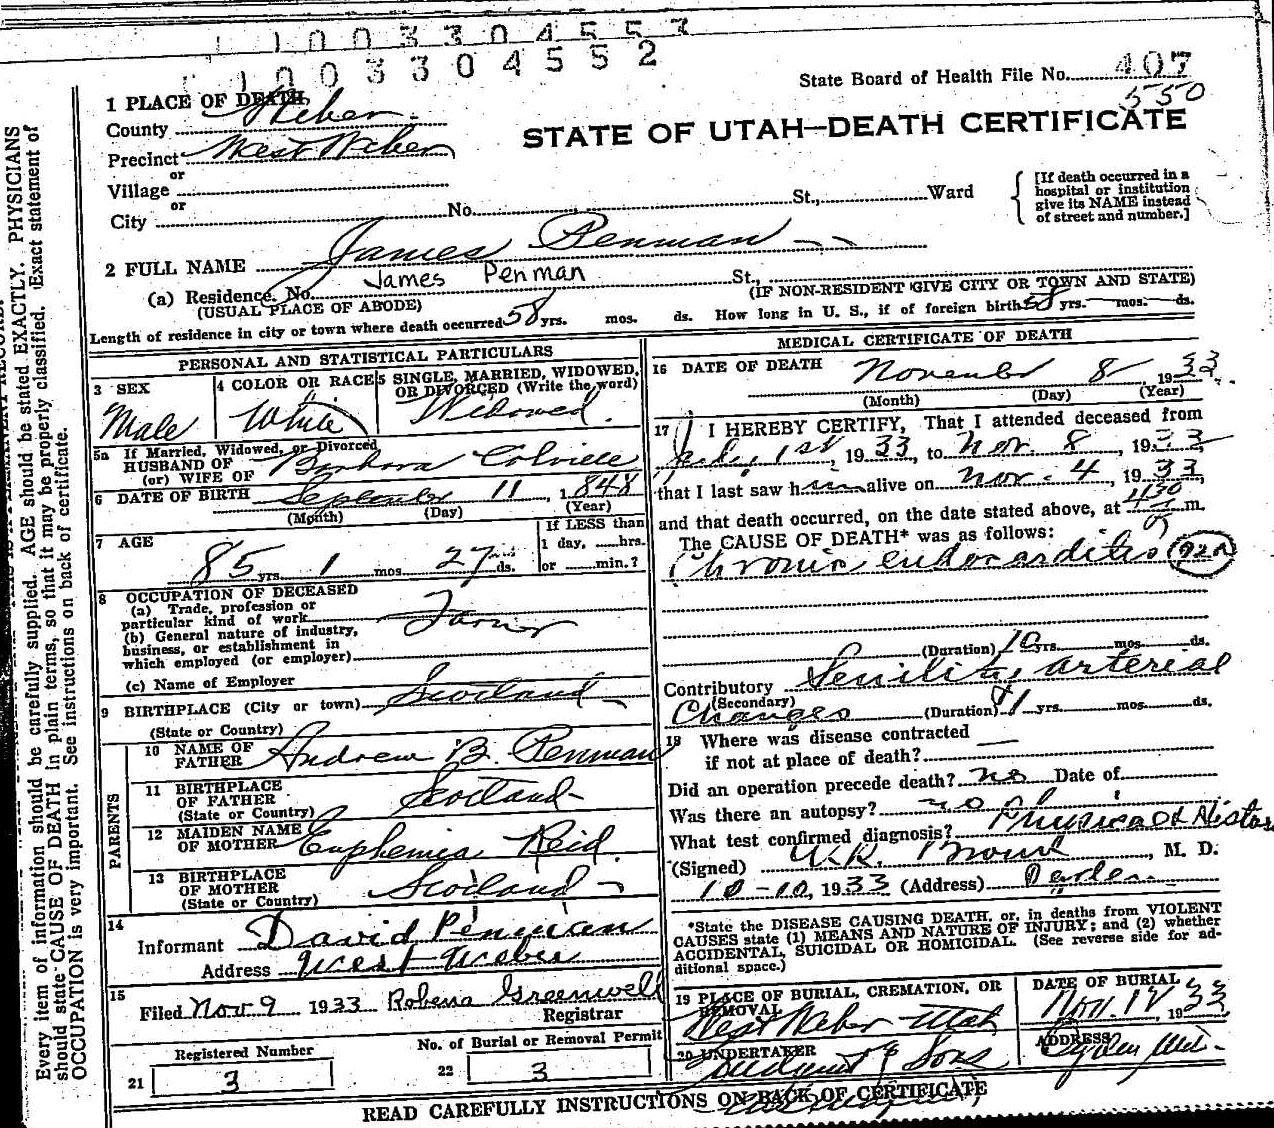 1 1 0 0 3 3 0 4 5 5 7
1 1 0 0 3 3 0 4 5 5 2
State Board of Health File No. 407
550
STATE OF UTAH—DEATH CERTIFICATE
1 PLACE OF DEATH
County Weber
Precinct West Weber
or
Village
or
City No. St., Ward
[If death occurred in a
hospital or institution
give its NAME instead
of street and number.]
2 FULL NAME James Penman
James Penman
(a) Residence. No. St.,
(USUAL PLACE OF ABODE) (IF NON-RESIDENT GIVE CITY OR TOWN AND STATE)
Length of residence in city or town where death occurred 58 yrs. mos. ds. How long in U. S., if of foreign birth 58 yrs. mos. ds.
PERSONAL AND STATISTICAL PARTICULARS
3 SEX
Male
4 COLOR OR RACE
White
5 SINGLE, MARRIED, WIDOWED,
OR DIVORCED (Write the word)
Widowed
5a If Married, Widowed, or Divorced
HUSBAND OF
(or) WIFE OF Barbara Colville
6 DATE OF BIRTH September 11, 1848
(Month) (Day) (Year)
7 AGE
85 yrs. 1 mos. 27 ds.
If LESS than
1 day, hrs.
or min.?
8 OCCUPATION OF DECEASED
(a) Trade, profession or
particular kind of work
(b) General nature of industry,
business, or establishment in
which employed (or employer)
(c) Name of Employer
9 BIRTHPLACE (City or town) Scotland
(State or Country)
PARENTS
10 NAME OF
FATHER Andrew B. Penman
11 BIRTHPLACE
OF FATHER Scotland
(State or Country)
12 MAIDEN NAME
OF MOTHER Euphemia Reid
13 BIRTHPLACE
OF MOTHER Scotland
(State or Country)
14
Informant David Penman
Address West Weber
15
Filed Nov 9 1933 Robena Greenwell
Registrar
Registered Number
21 3
No. of Burial or Removal Permit
22 3
MEDICAL CERTIFICATE OF DEATH
16 DATE OF DEATH November 8, 1933
(Month) (Day) (Year)
17 I HEREBY CERTIFY, That I attended deceased from
July 1st, 1933, to Nov. 8, 1933,
that I last saw him alive on Nov. 4, 1933,
and that death occurred, on the date stated above, at 430 m.
The CAUSE OF DEATH* was as follows:
Chronic endocarditis 92A
(Duration) 10 yrs. mos. ds.
Contributory Senility arterial
(Secondary)
Changes (Duration) yrs. mos. ds.
18 Where was disease contracted
if not at place of death?
Did an operation precede death? no Date of
Was there an autopsy? no
What test confirmed diagnosis? Physical & Histor
(Signed) Brown, M. D.
10-10, 1933 (Address) Ogden
*State the DISEASE CAUSING DEATH, or, in deaths from VIOLENT
CAUSES state (1) MEANS AND NATURE OF INJURY; and (2) whether
ACCIDENTAL, SUICIDAL OR HOMICIDAL. (See reverse side for ad-
ditional space.)
19 PLACE OF BURIAL, CREMATION, OR
REMOVAL
West Weber Utah
DATE OF BURIAL
Nov. 12, 1933
20 UNDERTAKER
& Sons
ADDRESS
Ogden Ut.
READ CAREFULLY INSTRUCTIONS ON BACK OF CERTIFICATE
Every item of information should be carefully supplied. AGE should be stated EXACTLY. PHYSICIANS
should state CAUSE OF DEATH in plain terms, so that it may be properly classified. Exact statement of
OCCUPATION is very important. See instructions on back of certificate.